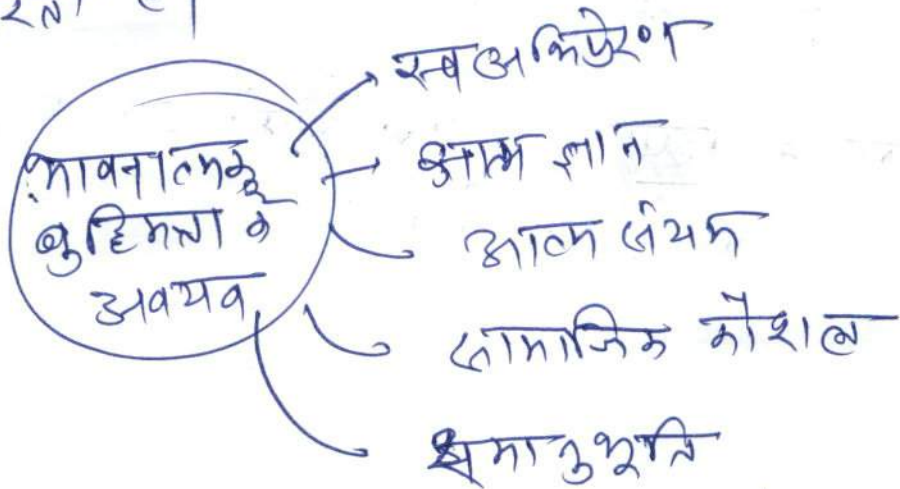 भावनात्मक
बुद्धिमत्ता के
अवयव
स्व अभिप्रेरण
आत्म ज्ञान
आत्म संयम
सामाजिक कौशल
समानुभूति